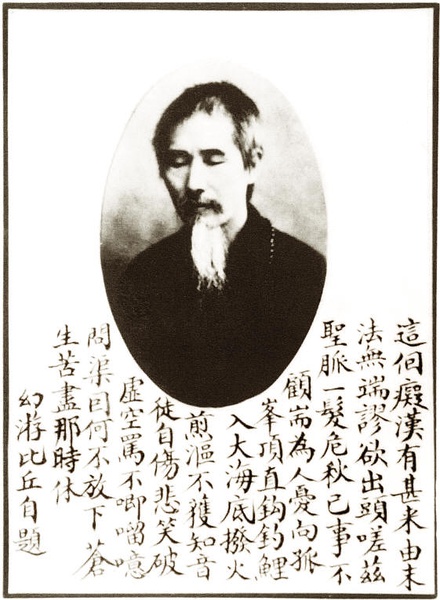 這個癡漢有甚来由末
法無端謬欲出頭嗟茲
聖脈一髮危秋己事不
顧耑為人憂向孤
峯頂直鈎釣鯉
入大海底撥火
煎漚不獲知音
徒自傷悲笑破
虛空罵不唧𠺕噫
問渠因何不放下蒼
生苦盡那時休
幻游比丘自題